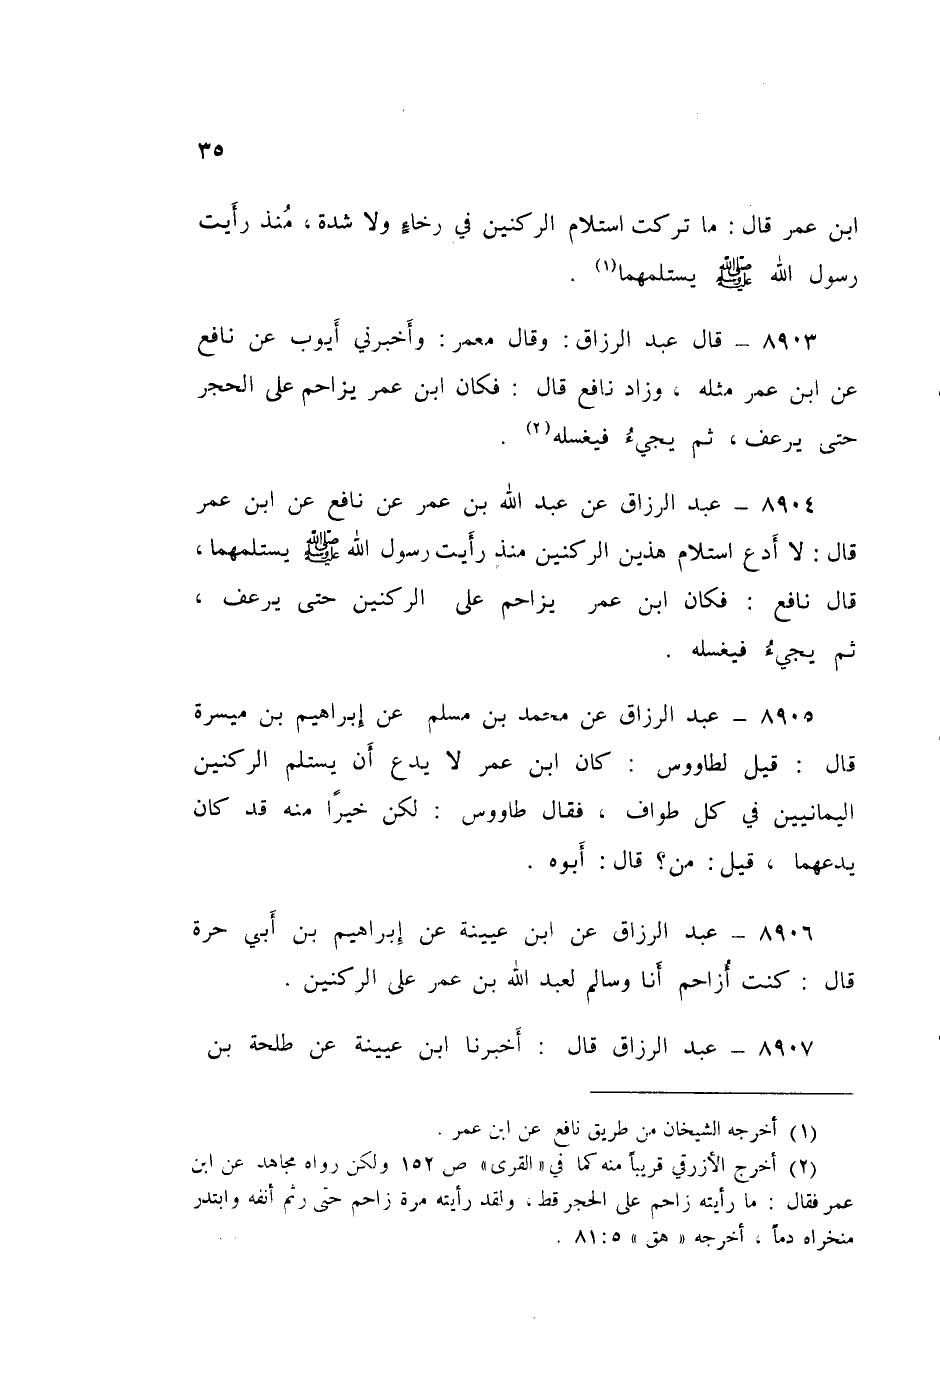 ٣٥
ابن عمر قال : ما تركت استلام الركنين في رخاءٍ ولا شدة ، مُنذ رأَيت
رسول الله ﷺ يستلمهما(١) .
٨٩٠٣ ــ قال عبد الرزاق : وقال معمر : وأَخبرني أَيوب عن نافع
عن ابن عمر مثله ، وزاد نافع قال : فكان ابن عمر يزاحم على الحجر
حتى يرعف ، ثم يجيءُ فيغسله(٢) .
٨٩٠٤ ــ عبد الرزاق عن عبد الله بن عمر عن نافع عن ابن عمر
قال : لا أَدع استلام هذين الركنين منذ رأَيت رسول الله ﷺ يستلمهما ،
قال نافع : فكان ابن عمر يزاحم على الركنين حتى يرعف ،
ثم يجيءُ فيغسله .
٨٩٠٥ ــ عبد الرزاق عن محمد بن مسلم عن إبراهيم بن ميسرة
قال : قيل لطاووس : كان ابن عمر لا يدع أَن يستلم الركنين
اليمانيين في كل طواف ، فقال طاووس : لكن خيرًا منه قد كان
يدعهما ، قيل : من؟ قال : أَبوه .
٨٩٠٦ ــ عبد الرزاق عن ابن عيينة عن إبراهيم بن أَبي حرة
قال : كنت أُزاحم أَنا وسالم لعبد الله بن عمر على الركنين .
٨٩٠٧ ــ عبد الرزاق قال : أَخبرنا ابن عيينة عن طلحة بن
(١) أخرجه الشيخان من طريق نافع عن ابن عمر .
(٢) أخرج الأزرقي قريباً منه كما في « القرى » ص ١٥٢ ولكن رواه مجاهد عن ابن
عمر فقال : ما رأيته زاحم على الحجر قط ، ولقد رأيته مرة زاحم حتّى رثم أنفه وابتدر
منخراه دماً ، أخرجه « هق » ٥ : ٨١ .